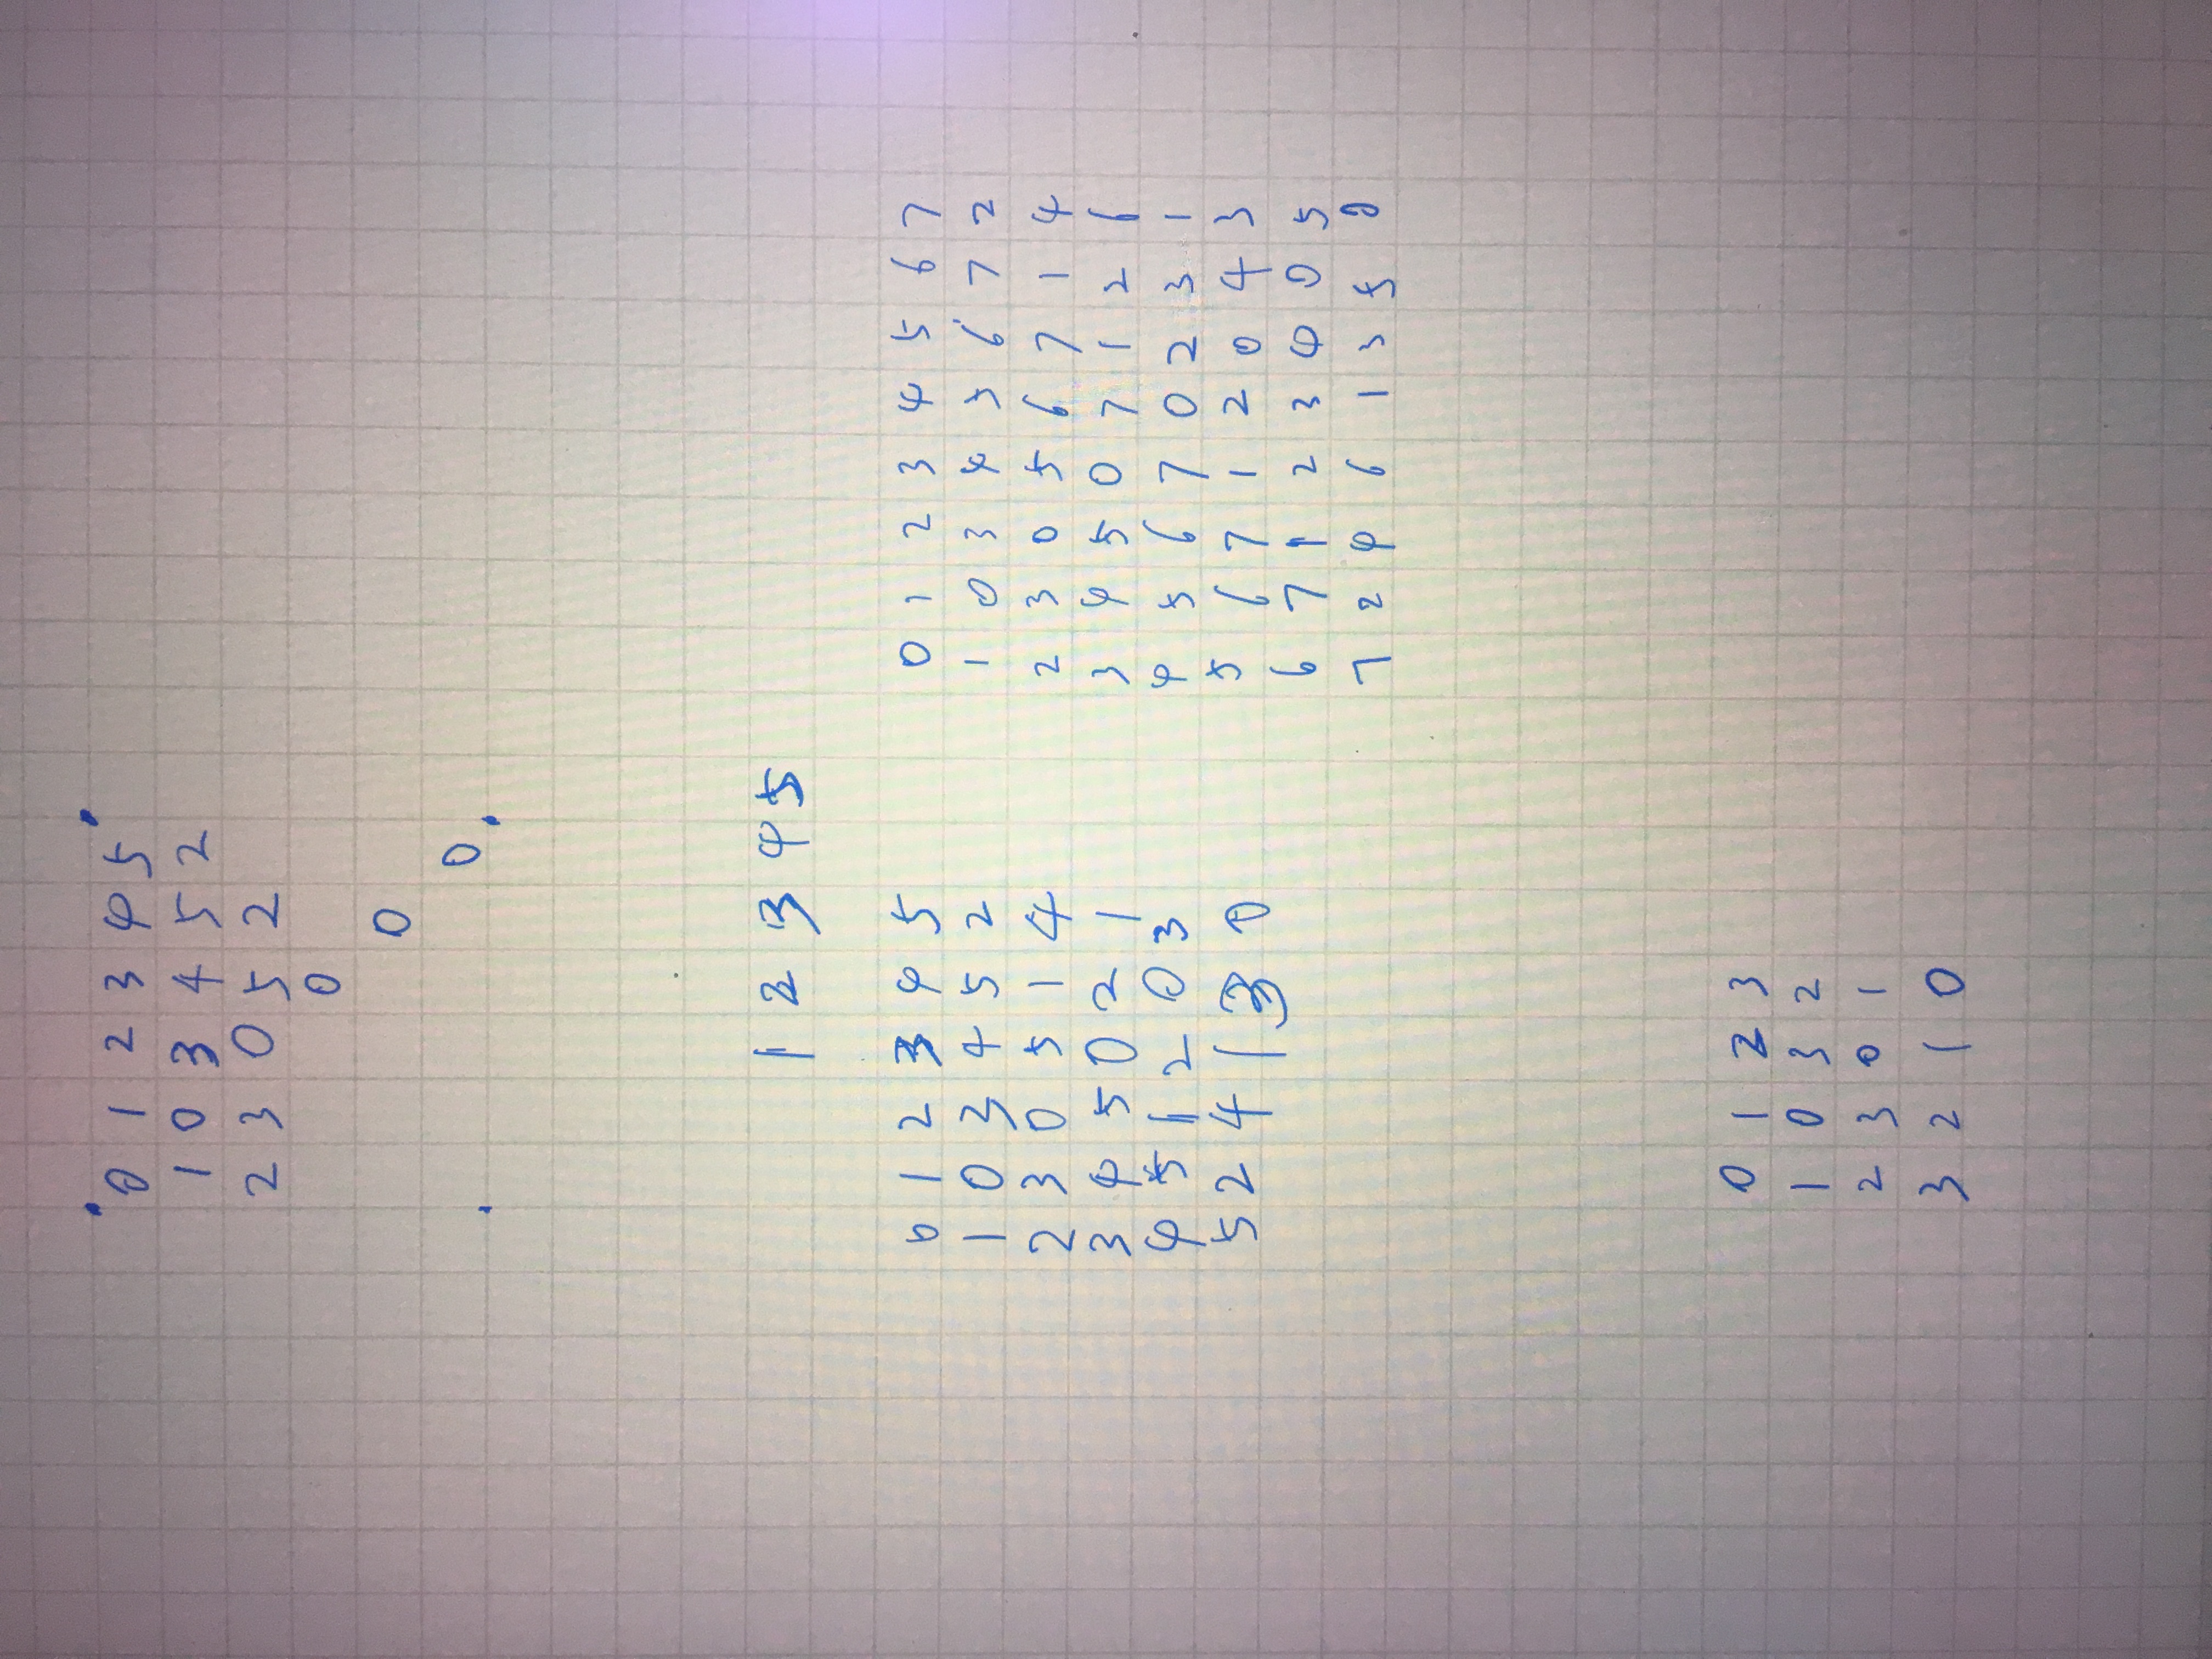 0 1 2 3 4 5
1 0 3 4 5 2
2 3 0 5 2
0
0
0
1 2 3 4 5
0 1 2 3 4 5
1 0 3 4 5 2
2 3 0 5 1 4
3 4 5 0 2 1
4 5 1 2 0 3
5 2 4 1 3 0
0 1 2 3 4 5 6 7
1 0 3 4 5 6 7 2
2 3 0 5 6 7 1 4
3 4 5 0 7 1 2 6
4 5 6 7 0 2 3 1
5 6 7 1 2 0 4 3
6 7 1 2 3 4 0 5
7 2 4 6 1 3 5 0
0 1 2 3
1 0 3 2
2 3 0 1
3 2 1 0